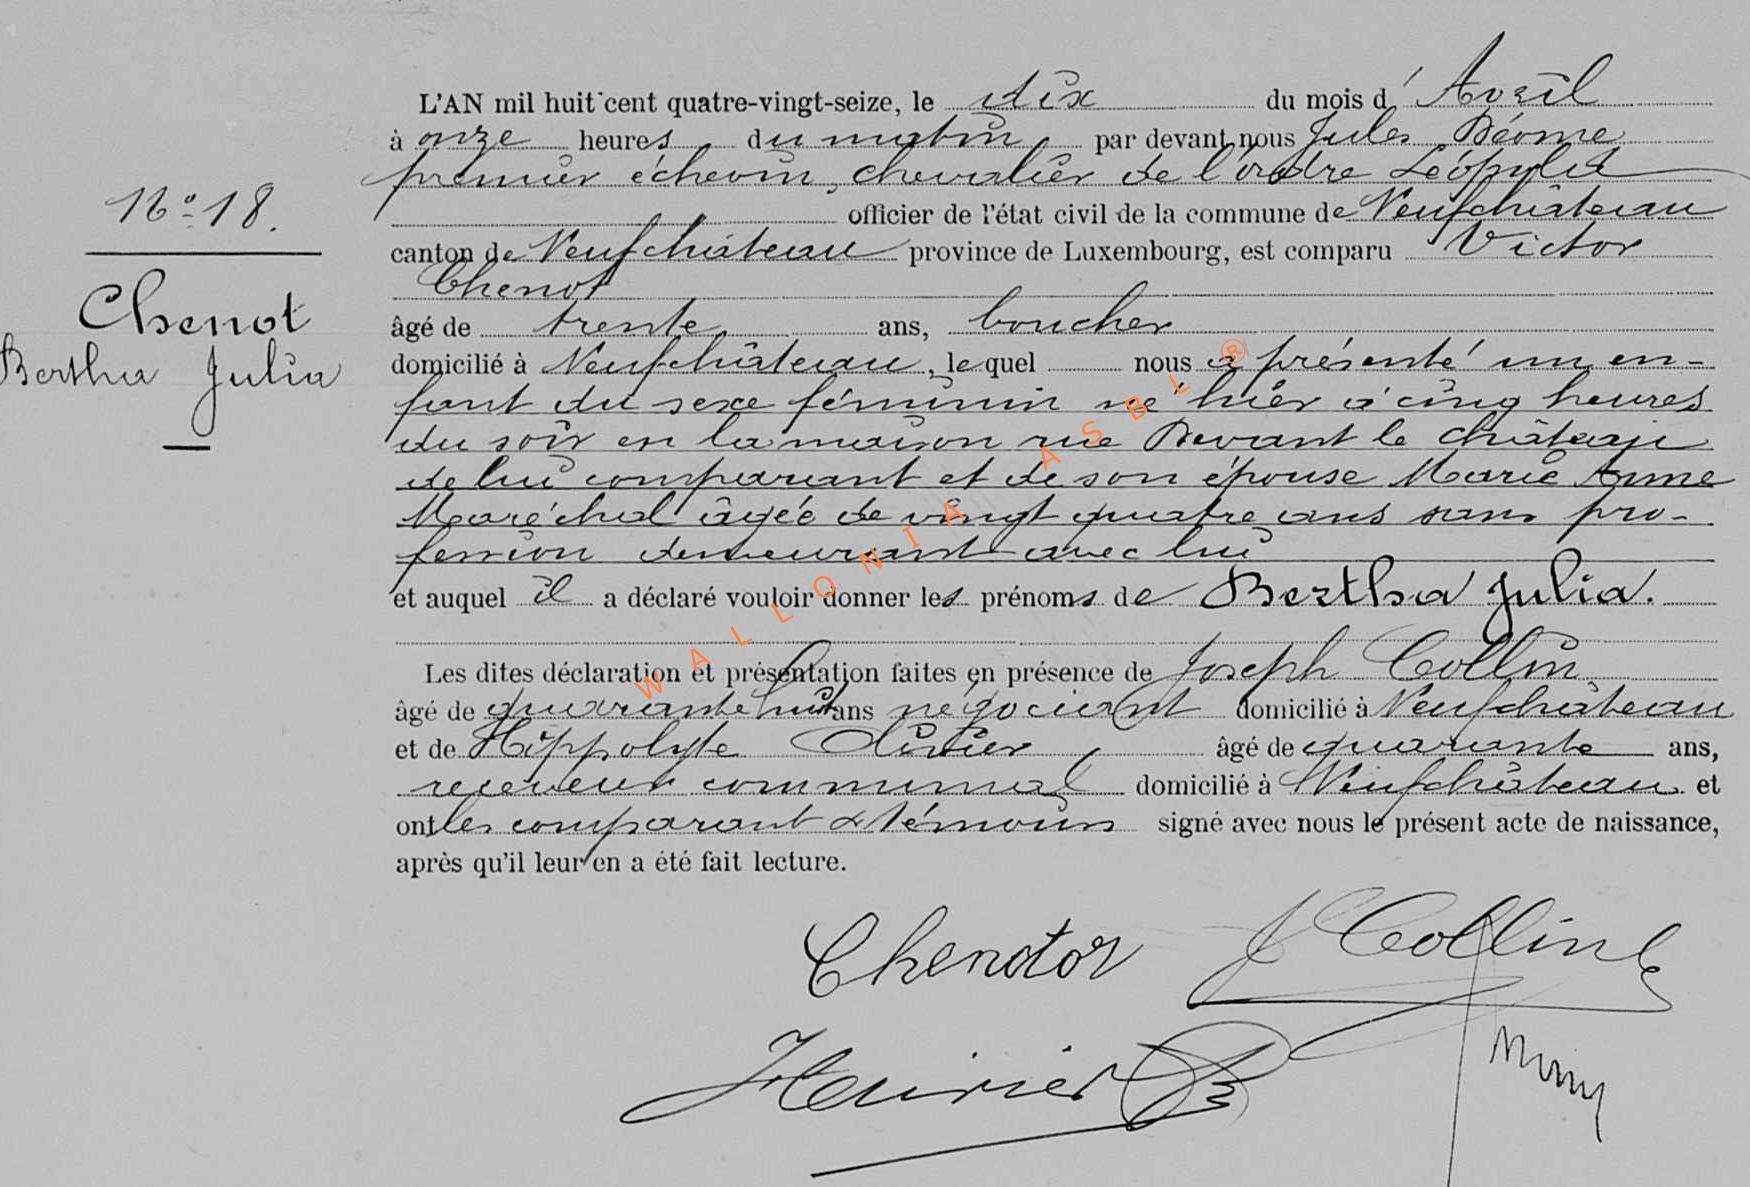 L'AN mil huit cent quatre-vingt-seize, le dix du mois d'Avril
à onze heures du matin par devant nous Jules
premier échevin, chevalier de l'ordre Léopold
officier de l'état civil de la commune de Neufchâteau
canton de Neufchâteau province de Luxembourg, est comparu Victor
Chenot
âgé de trente ans, boucher
domicilié à Neufchâteau, lequel nous a présenté un en-
fant du sexe féminin né hier à cinq heures
du soir en la maison rue Devant le château
de lui comparant et de son épouse Marie Anne
Maréchal âgée de vingt quatre ans sans pro-
fession demeurant avec lui
et auquel il a déclaré vouloir donner les prénoms de Bertha Julia.
Les dites déclaration et présentation faites en présence de Joseph Collin
âgé de quarante huit ans négociant domicilié à Neufchâteau
et de Hippolyte âgé de quarante ans,
receveur communal domicilié à Neufchâteau et
ont les comparant & témoins signé avec nous le présent acte de naissance,
après qu'il leur en a été fait lecture.
N° 18.
Chenot
Bertha Julia
Chenot J Collin
WALLONIA ASBL ®